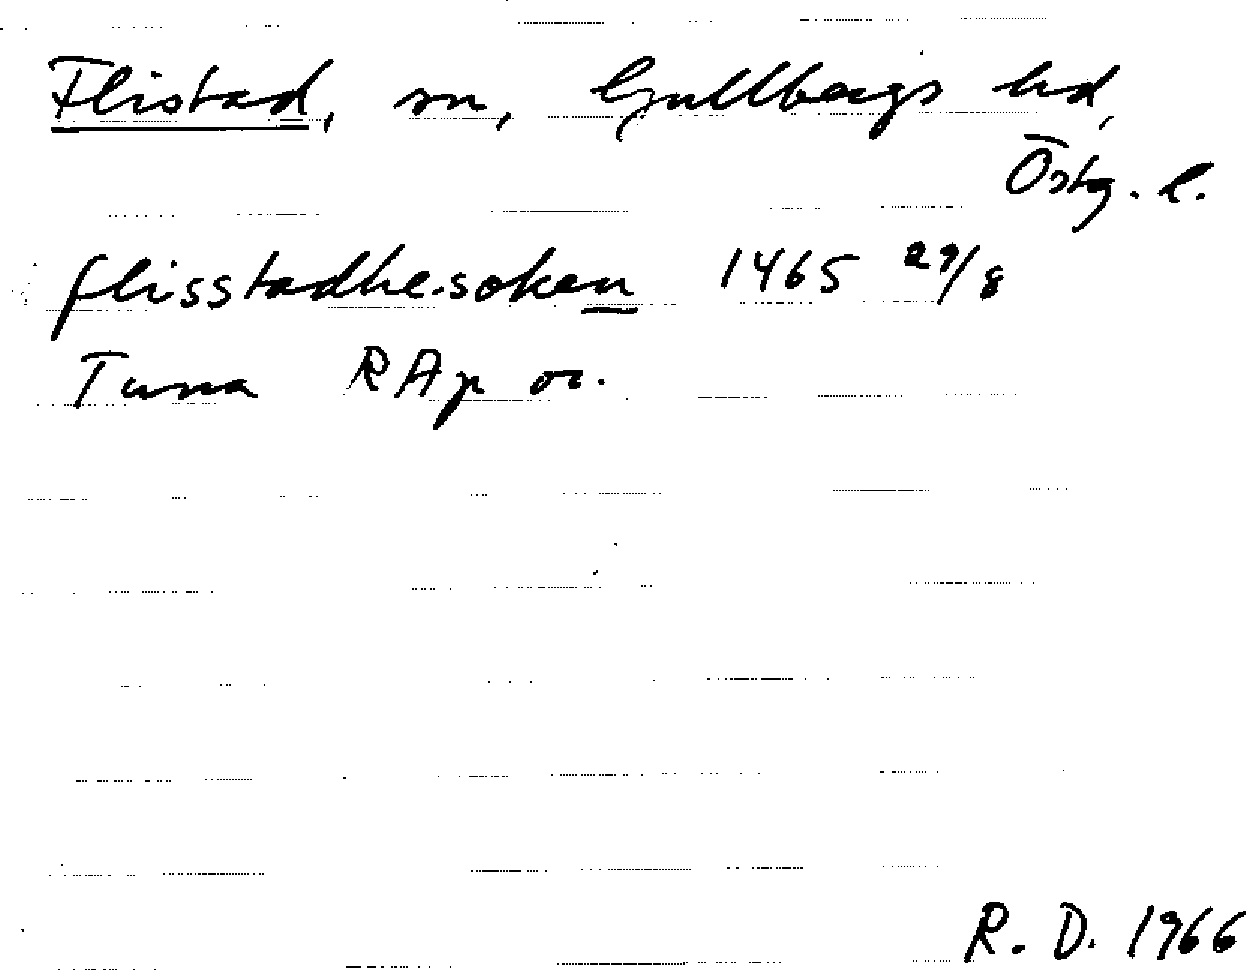 Flistad, sn, Gullbergs hd,
Östg. l.
flisstadhe.soken 1465 29/8
Tuna RAp or.
R. D. 1966